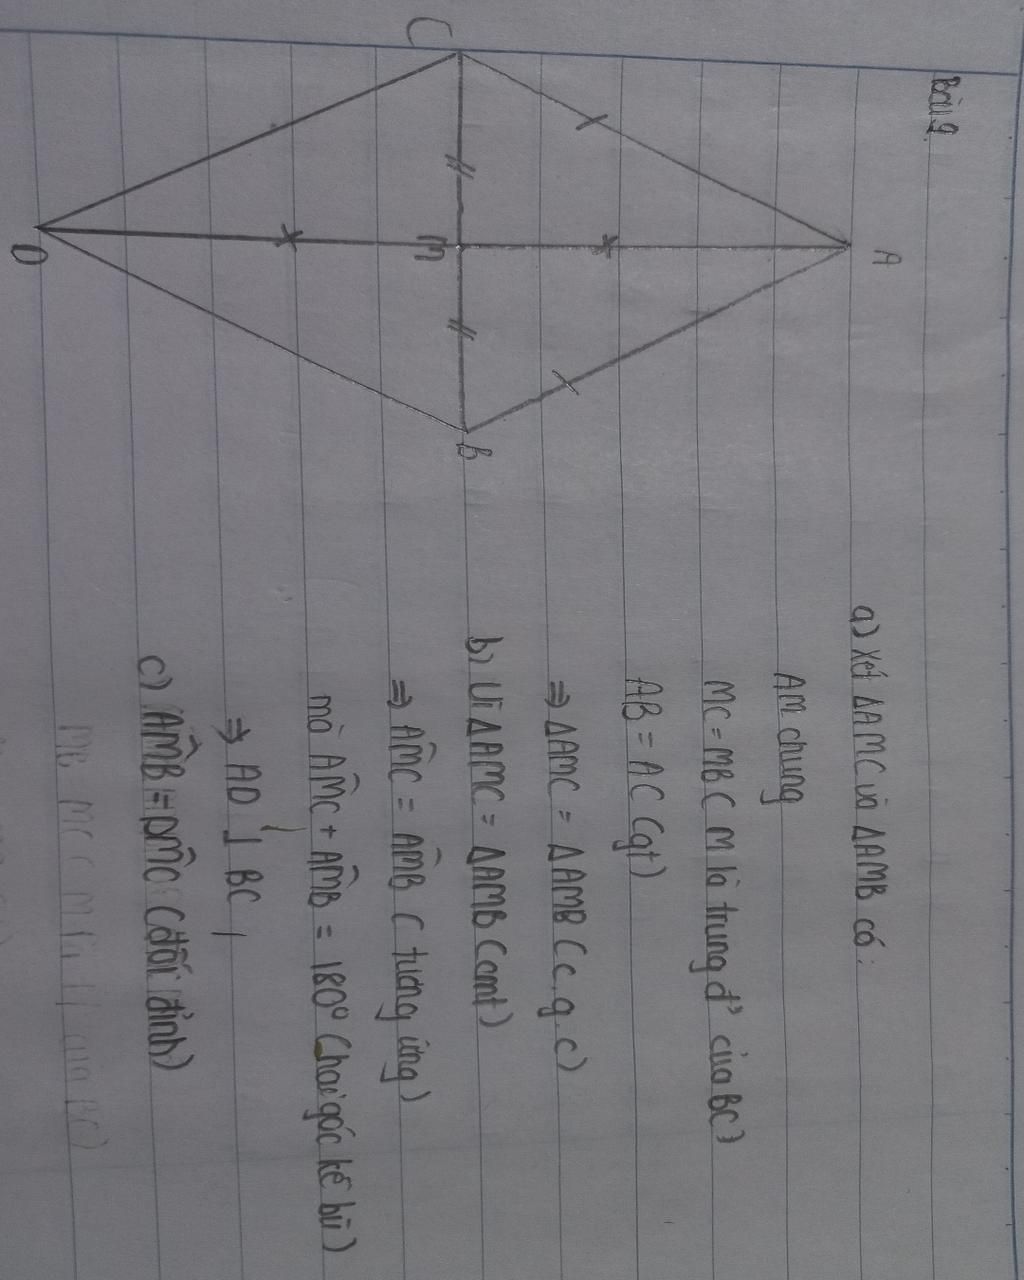 Bài 9
C
A
M
D
B
a) Xét ΔAMC và ΔAMB có:
AM chung
MC = MB ( M là trung đ' của BC)
AB = AC (gt)
⇒ ΔAMC = ΔAMB (c.g.c)
b) Vì ΔAMC = ΔAMB (cmt)
⇒ AM̂C = AM̂B ( tương ứng)
mà AM̂C + AM̂B = 180° (hai góc kề bù)
⇒ AD ⊥ BC
c) AM̂B = DM̂C (đối đỉnh)
MB MC ( M là của BC)